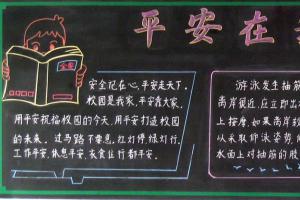 平安在
安全
安全记在心,平安走天下。
校园是我家,平安靠大家。
用平安祝福校园的今天,用平安打造校园
的未来。过马路不要急,红灯停绿灯行。
工作平安、休息平安、衣食住行都平安。
游泳发生抽筋
离岸很近,应立即出
上按摩。如果离岸较
以采取仰泳姿势,
水面上对抽筋的肢